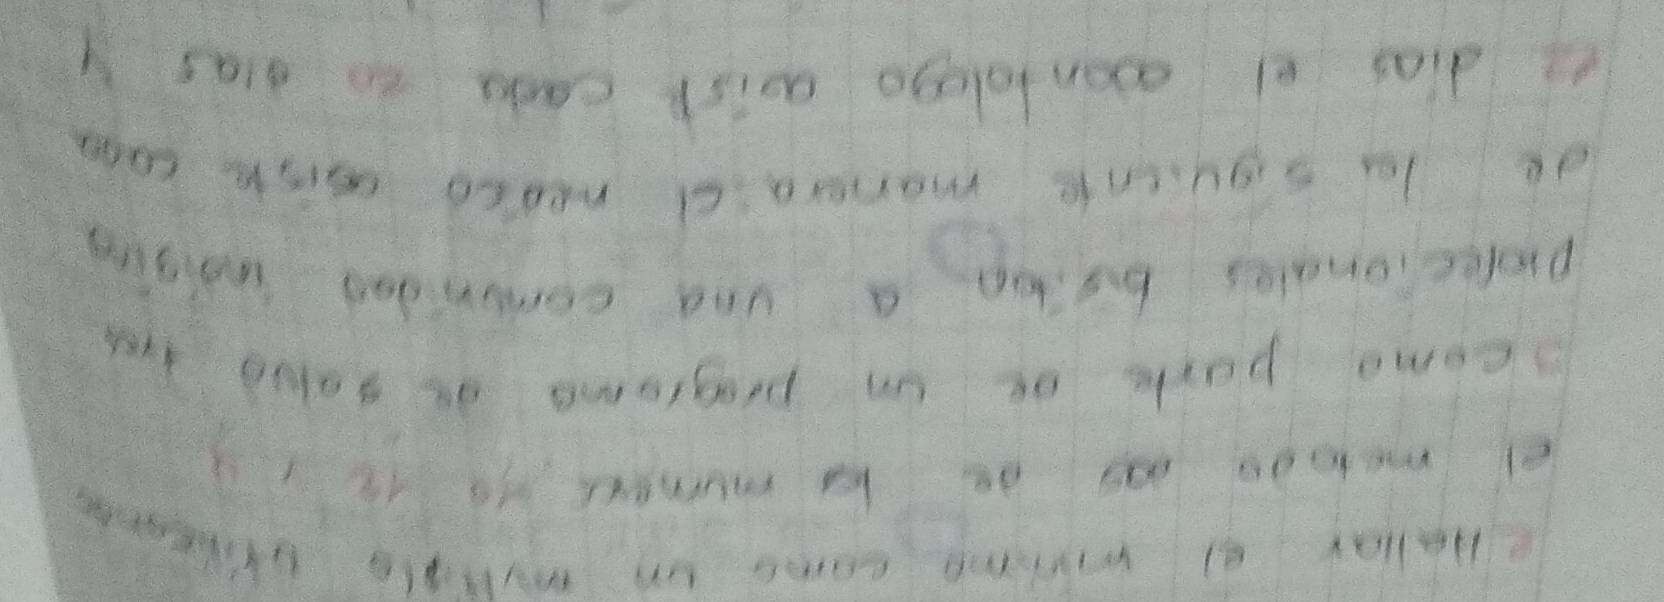 2 Hallar el minimo comun un multiplo utilizando
el metodo dos de los numeros 40 12 y 4
3 como parte de un programa de salud tres
profecionales bisitan a una comunidad indigina
de la siguiente manera: el medico asiste cada
12 dias el odontologo asiste cada 20 dias y